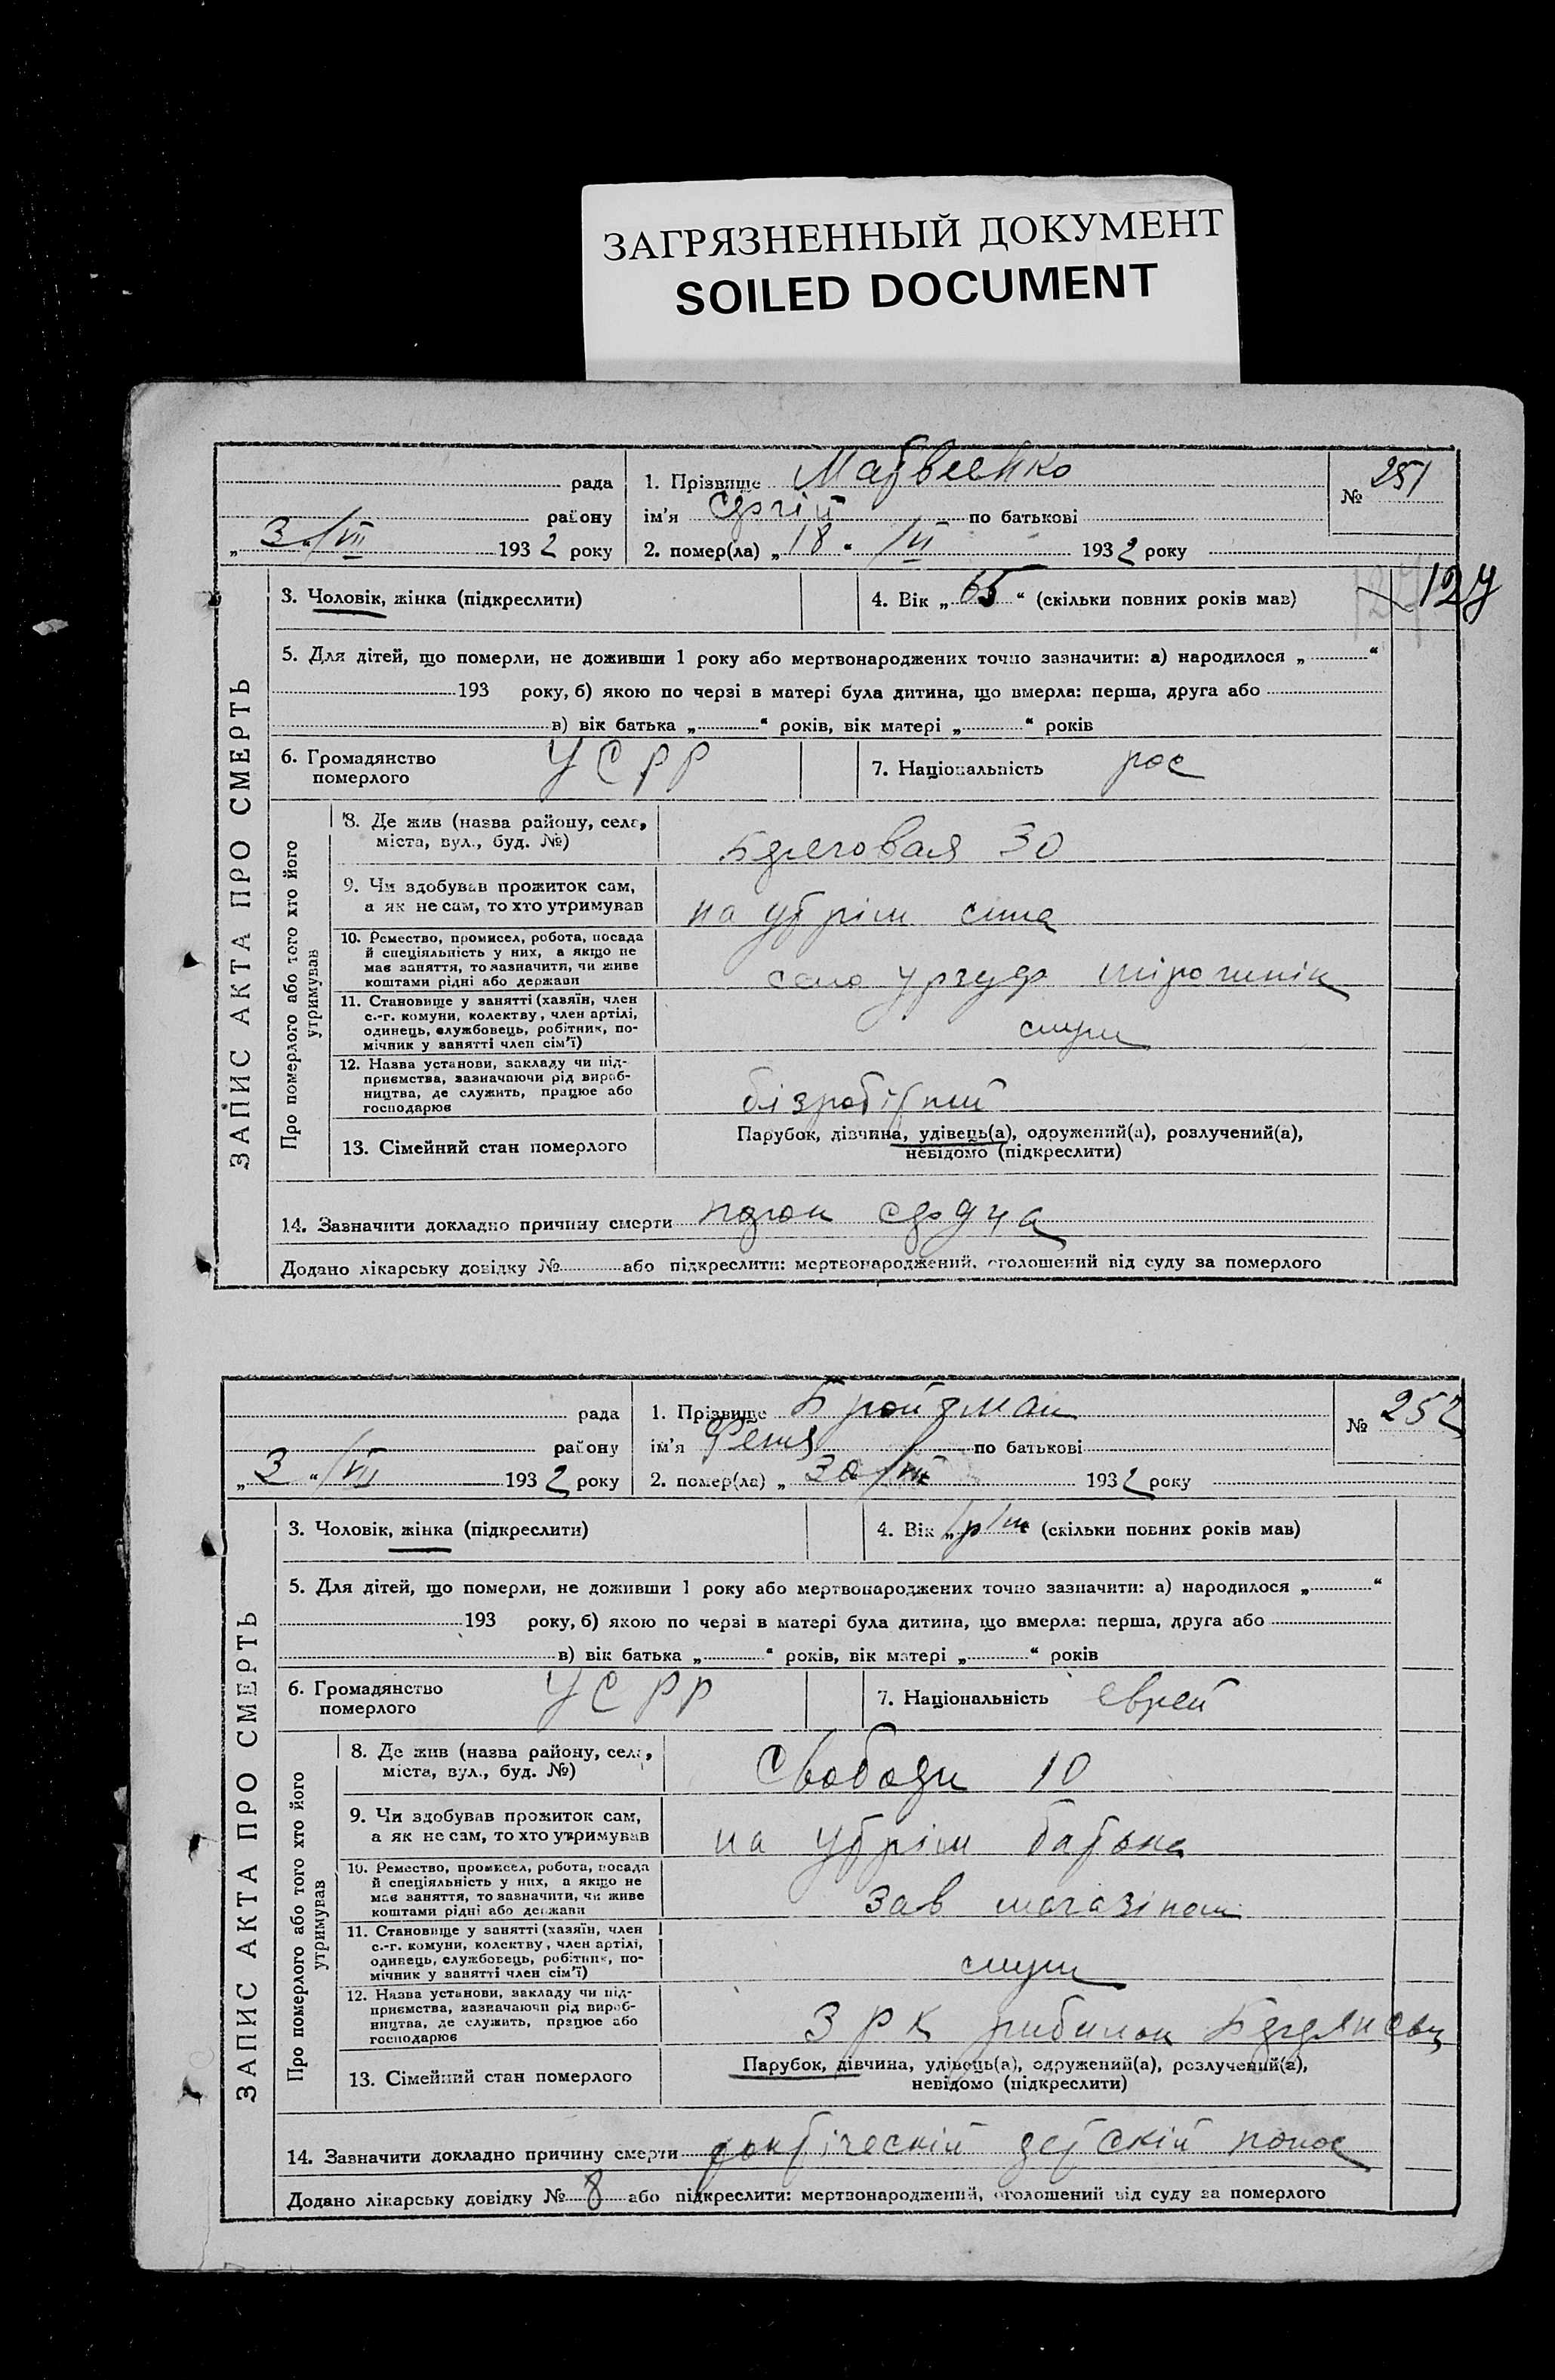 ЗАГРЯЗНЕННЫЙ ДОКУМЕНТ
SOILED DOCUMENT
рада
1. Прізвище Матвеенко
№ 251
району
ім'я Сергій по батькові
„3“/VII 1932 року
2. помер(ла) „18“ /VI 1932 року
127
127
3. Чоловік, жінка (підкреслити)
4. Вік „65“ (скільки повних років мав)
ЗАПИС АКТА ПРО СМЕРТЬ
5. Для дітей, що померли, не доживши 1 року або мертвонароджених точно зазначити: а) народилося „ “
193 року, б) якою по черзі в матері була дитина, що вмерла: перша, друга або
в) вік батька „ “ років, вік матері „ “ років
6. Громадянство
померлого
УСРР
7. Національність рос
Про померлого або того хто його
утримував
8. Де жив (назва району, села,
міста, вул., буд. №)
Береговая 30
9. Чи здобував прожиток сам,
а як не сам, то хто утримував
на утрім сина
10. Ремество, промисел, робота, посада
й спеціяльність у них, а якщо не
має заняття, то зазначити, чи живе
коштами рідні або держави
11. Становище у занятті (хазяїн, член
с.-г. комуни, колективу, член артілі,
одинець, службовець, робітник, по-
мічник у занятті член сім'ї)
служ
12. Назва установи, закладу чи під-
приємства, зазначаючи рід вироб-
ництва, де служить, працює або
господарює
13. Сімейний стан померлого
Парубок, дівчина, удівець(а), одружений(а), розлучений(а),
невідомо (підкреслити)
14. Зазначити докладно причину смерти порок сердца
Додано лікарську довідку № або підкреслити: мертвонароджений, оголошений від суду за померлого
рада
1. Прізвище Бройтман
№ 252
району
ім'я Феня по батькові
„3“/VII 1932 року
2. помер(ла) „30/VI 1932 року
3. Чоловік, жінка (підкреслити)
4. Вік „1р/1м (скільки повних років мав)
ЗАПИС АКТА ПРО СМЕРТЬ
5. Для дітей, що померли, не доживши 1 року або мертвонароджених точно зазначити: а) народилося „ “
193 року, б) якою по черзі в матері була дитина, що вмерла: перша, друга або
в) вік батька „ “ років, вік матері „ “ років
6. Громадянство
померлого
УСРР
7. Національність еврей
Про померлого або того хто його
утримував
8. Де жив (назва району, села,
міста, вул., буд. №)
Свободи 10
9. Чи здобував прожиток сам,
а як не сам, то хто утримував
на утрім батька
10. Ремество, промисел, робота, посада
й спеціяльність у них, а якщо не
має заняття, то зазначити, чи живе
коштами рідні або держави
зав магазіном
11. Становище у занятті (хазяїн, член
с.-г. комуни, колективу, член артілі,
одинець, службовець, робітник, по-
мічник у занятті член сім'ї)
служ
12. Назва установи, закладу чи під-
приємства, зазначаючи рід вироб-
ництва, де служить, працює або
господарює
ЗРК
13. Сімейний стан померлого
Парубок, дівчина, удівець(а), одружений(а), розлучений(а),
невідомо (підкреслити)
14. Зазначити докладно причину смерти детскій понос
Додано лікарську довідку № 8 або підкреслити: мертвонароджений, оголошений від суду за померлого